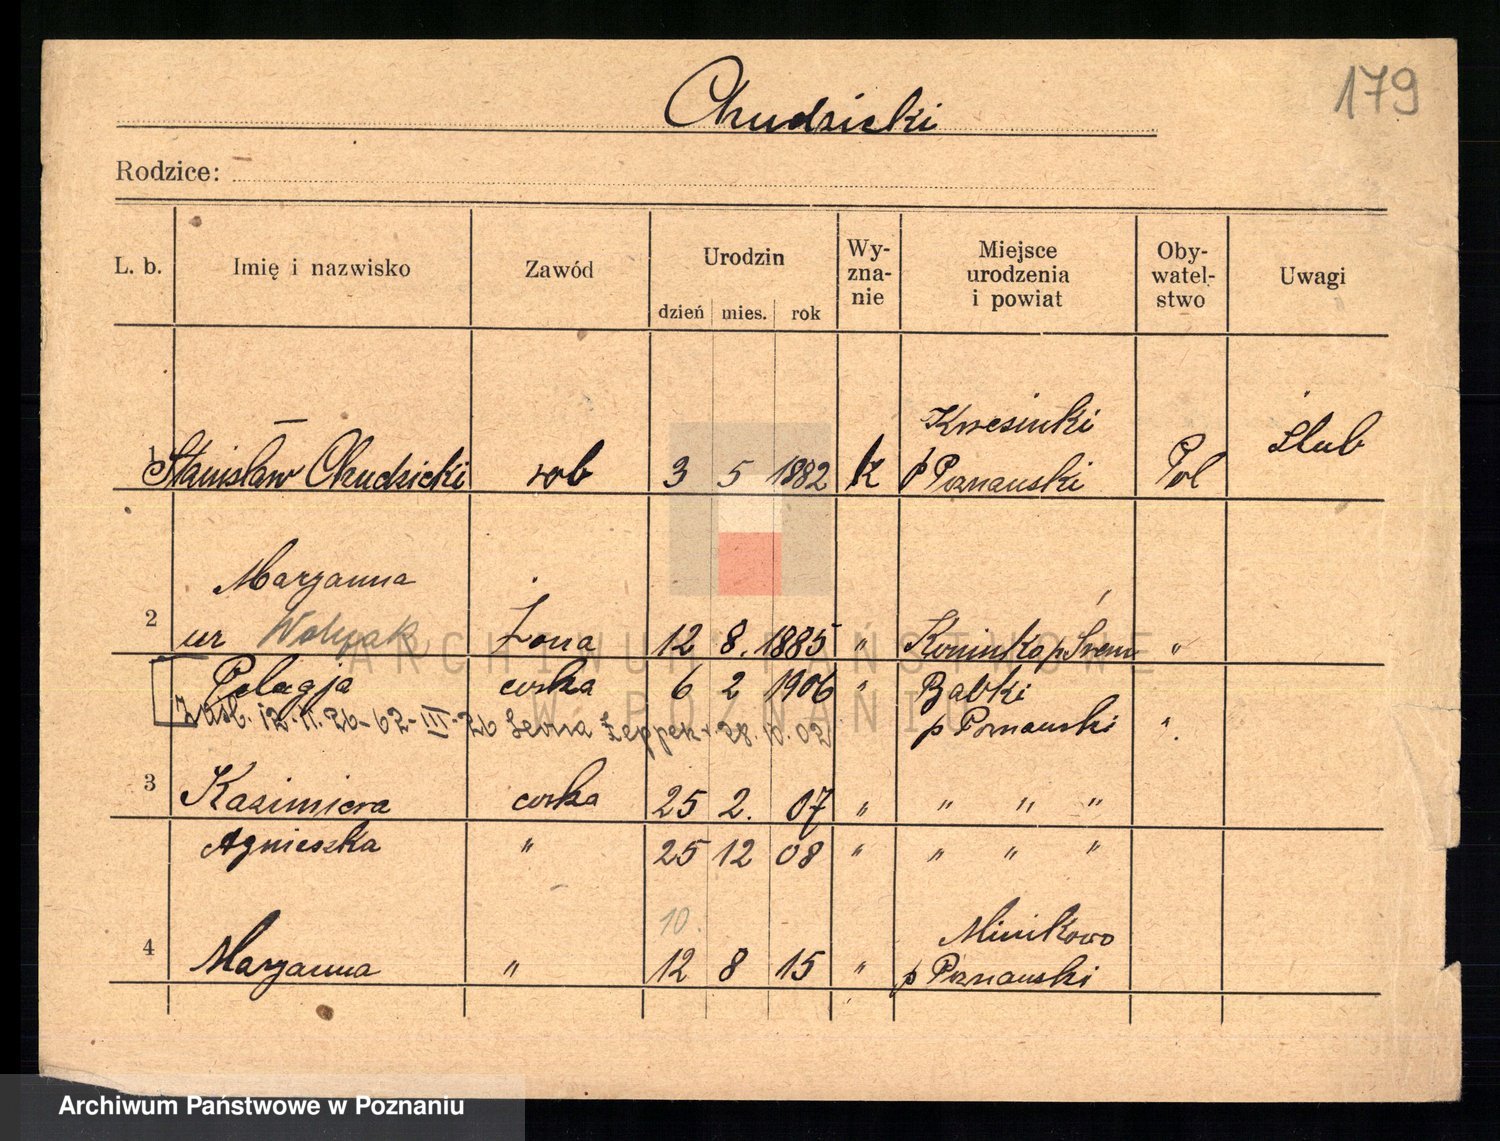 179
Chudzicki
Rodzice:
L. b. Imię i nazwisko Zawód Urodzin dzień mies. rok Wy-zna-nie Miejsce urodzenia i powiat Oby-watel-stwo Uwagi
Krzesinki
1 Stanisław Chudzicki rob 3 5 1882 k p Poznański Pol Slub
Maryanna
2 ur Wolny żona 12 8. 1885 " Koninko p Śrem "
Pelagja corka 6 2 1906 " Babki
Zaśl. 12.II.26-62-III-26 Leona Zeppek * 28.10.02 p Poznański "
3 Kazimiera corka 25 2. 07 " " " "
Agnieszka " 25 12 08 " " " "
10.
Minikowo
4 Maryanna " 12 8 15 " p Poznański
ARCHIWUM PAŃSTWOWE
W POZNANIU
Archiwum Państwowe w Poznaniu